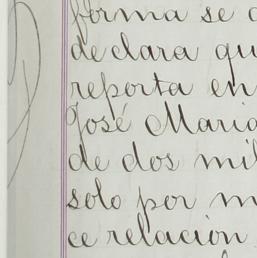 forma se
declara qu
reporta en
José Maria
de dos mil
solo por m
ce relacion